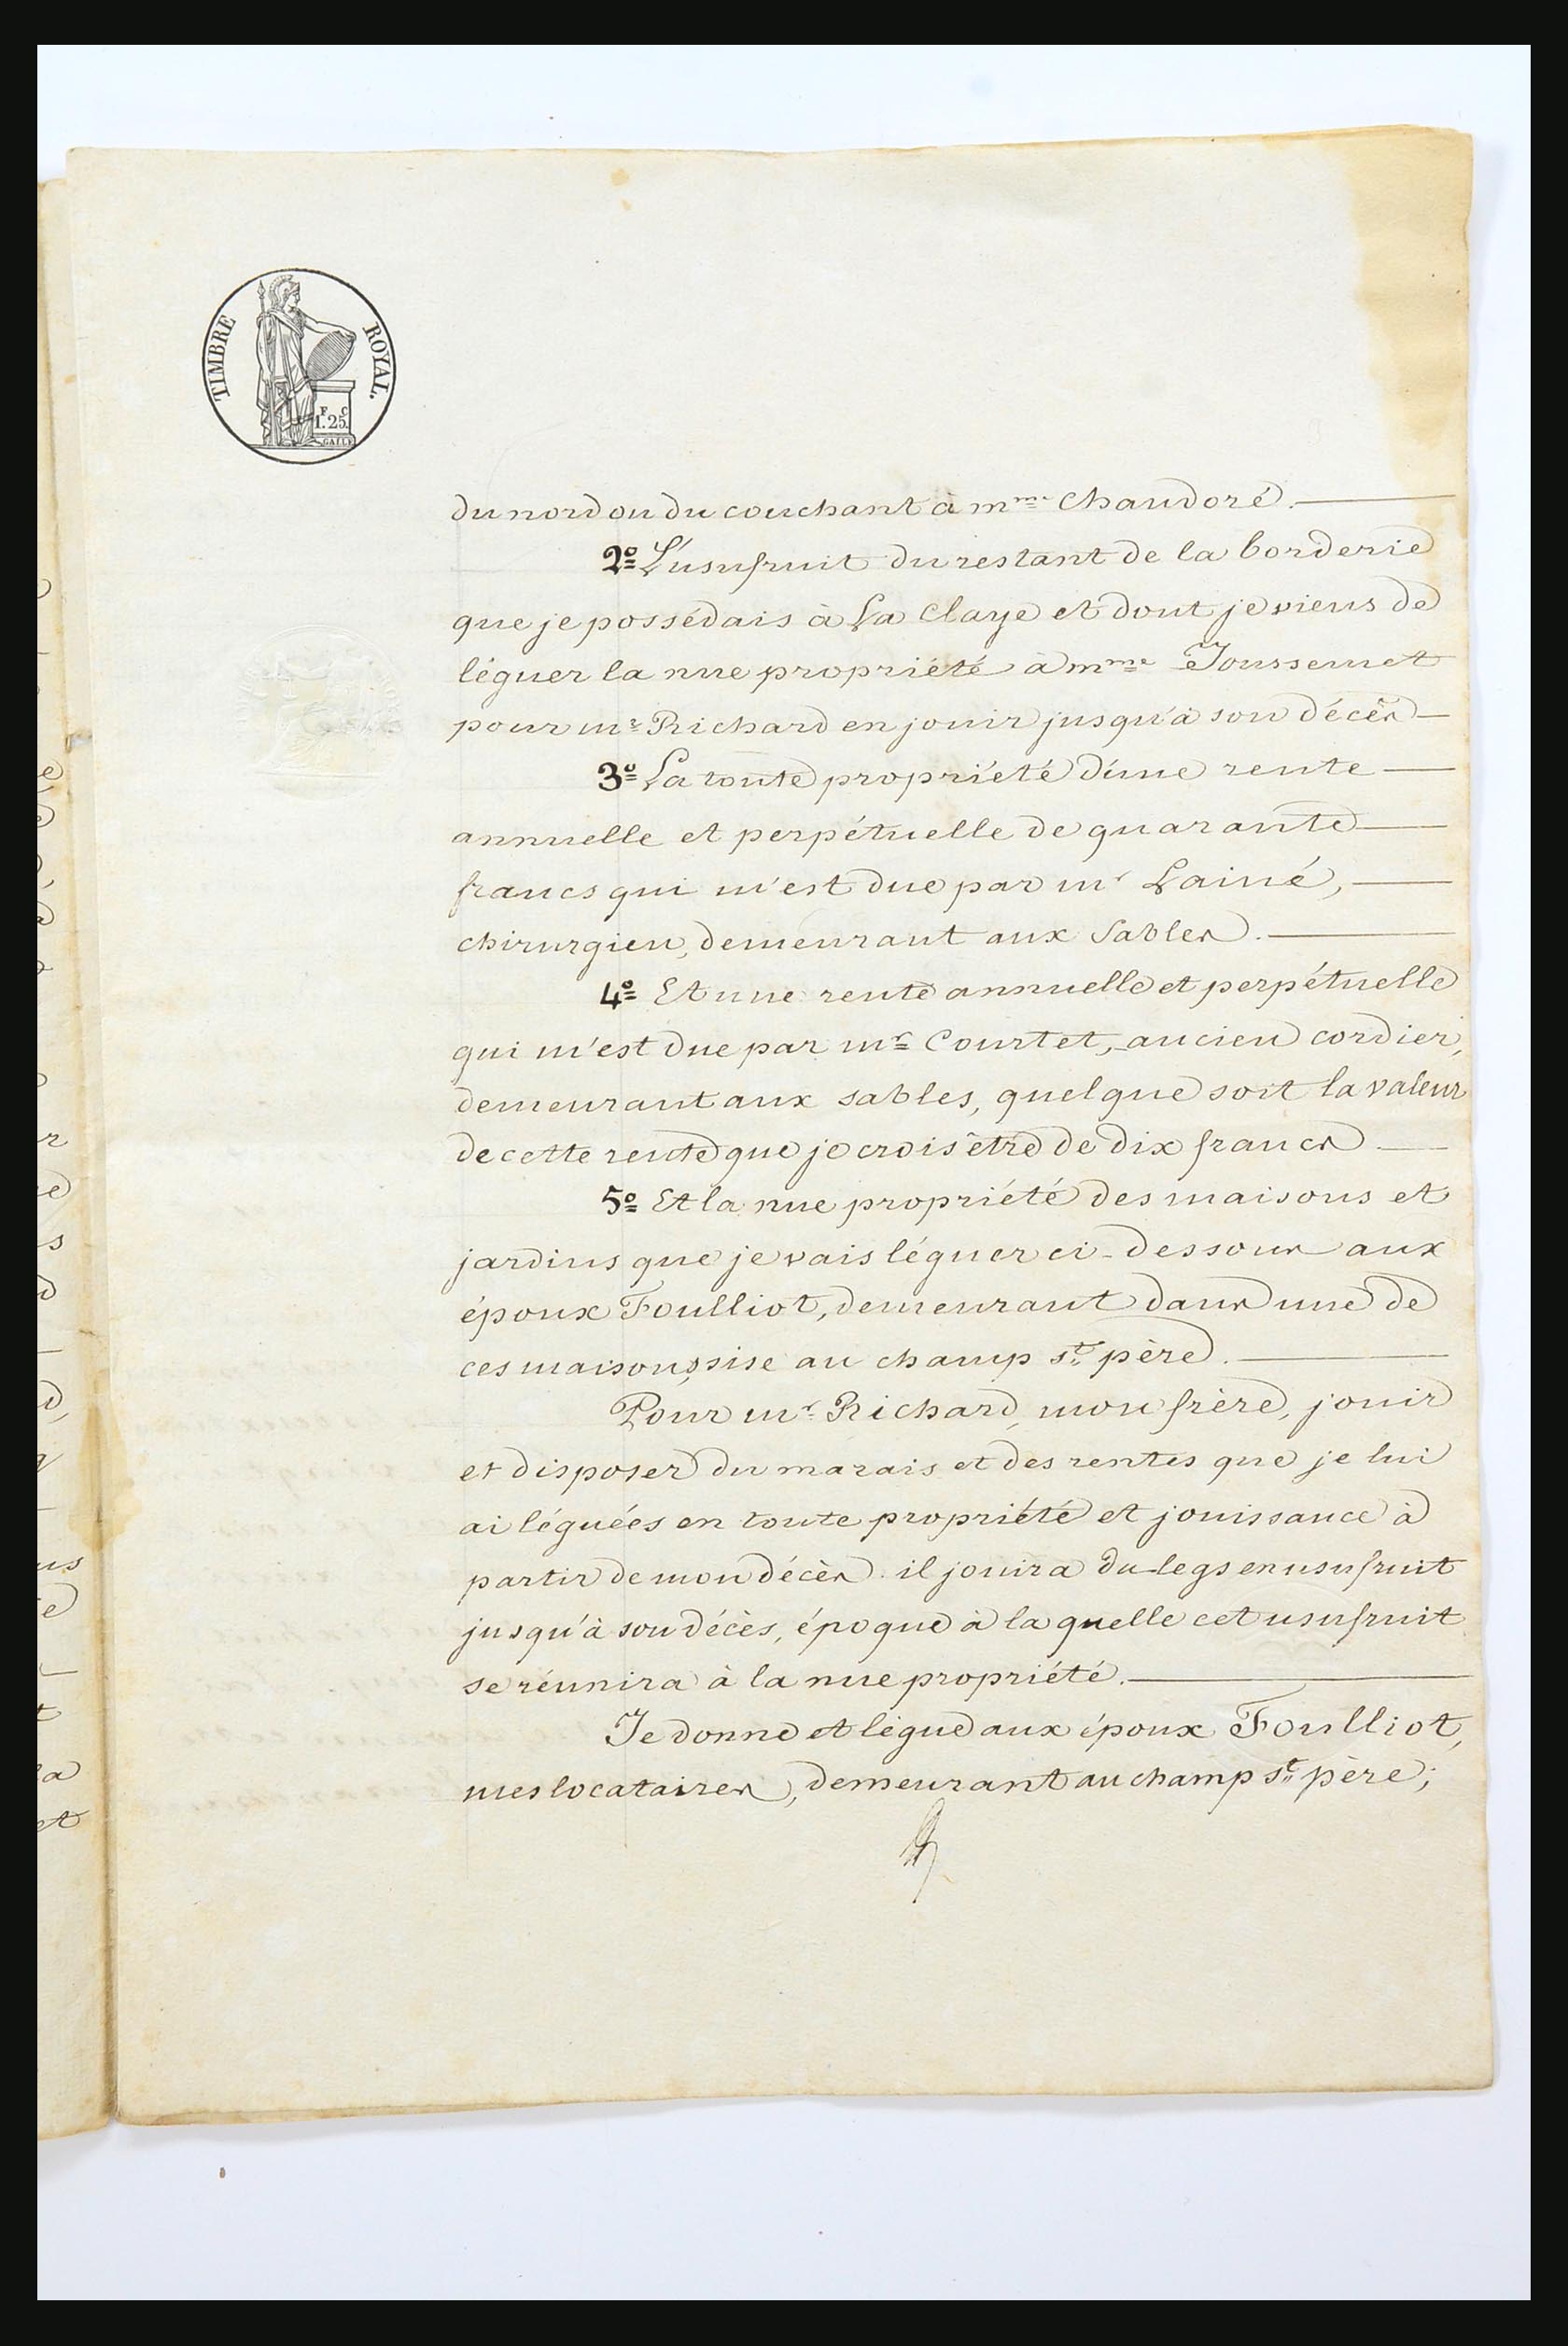 TIMBRE ROYAL.
F C
1.25
GALLE
du nord ou du couchant à mme Chaudoré.
2º L'usufruit du restant de la borderie
que je possédais à La Claye et dont je viens de
léguer la nue propriété à mme Joussemet
pour mr Richard en jouir jusqu'à son décès
3º La toute propriété d'une rente
annuelle et perpétuelle de quarante
francs qui m'est due par mr Lainé,
chirurgien, demeurant aux Sables.
4º Et une rente annuelle et perpétuelle
qui m'est due par mr Courtet, ancien cordier,
demeurant aux sables, quelque soit la valeur
de cette rente que je crois être de dix francs
5º Et la nue propriété des maisons et
jardins que je vais léguer ci-dessous aux
époux Foulliot, demeurant dans une de
ces maisons, sise au champ st père.
Pour mr Richard, mon frère, jouir
et disposer du marais et des rentes que je lui
ai léguées en toute propriété et jouissance à
partir de mon décès. il jouira du legs en usufruit
jusqu'à son décès, époque à la quelle cet usufruit
se réunira à la nue propriété.
Je donne et lègue aux époux Foulliot,
mes locataires, demeurant au champ st père;